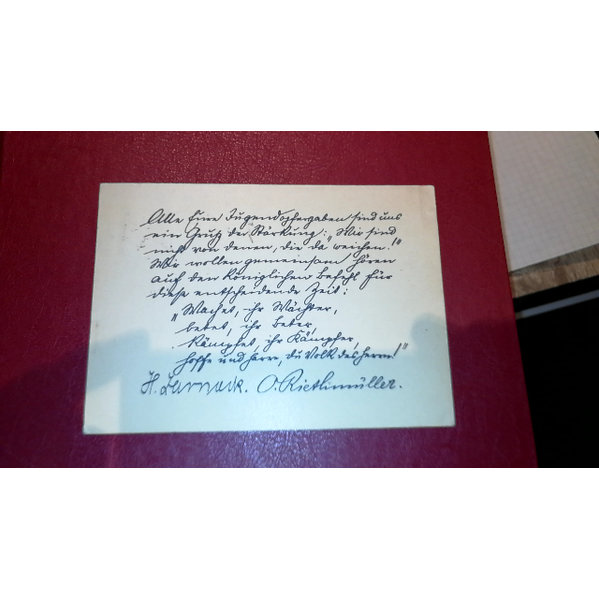 Alle Eure Jugendopfergaben sind uns
ein Gruß der Stärkung: „Wir sind
nicht von denen, die da weichen!"
Wir wollen gemeinsam hören
auf den königlichen Befehl für
diese entscheidende Zeit:
„Wachet, ihr Wächter,
betet, ihr Beter,
kämpfet, ihr Kämpfer,
hoffe und harre, du Volk des Herrn!"
H. Zarnack. O. Riethmüller.